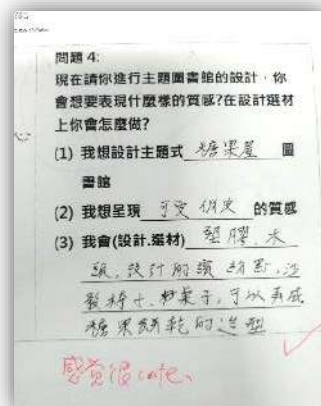 問題 4:
現在請你進行主題圖書館的設計,你
會想要表現什麼樣的質感?在設計選材
上你會怎麼做?
(1) 我想設計主題式 糖果屋 圖
書館
(2) 我想呈現 可愛 俏皮 的質感
(3) 我會(設計.選材) 塑膠、木
頭,設計的繽紛點,沙
發椅子、桌子,可以弄成
糖果餅乾的造型
感覺很cute、